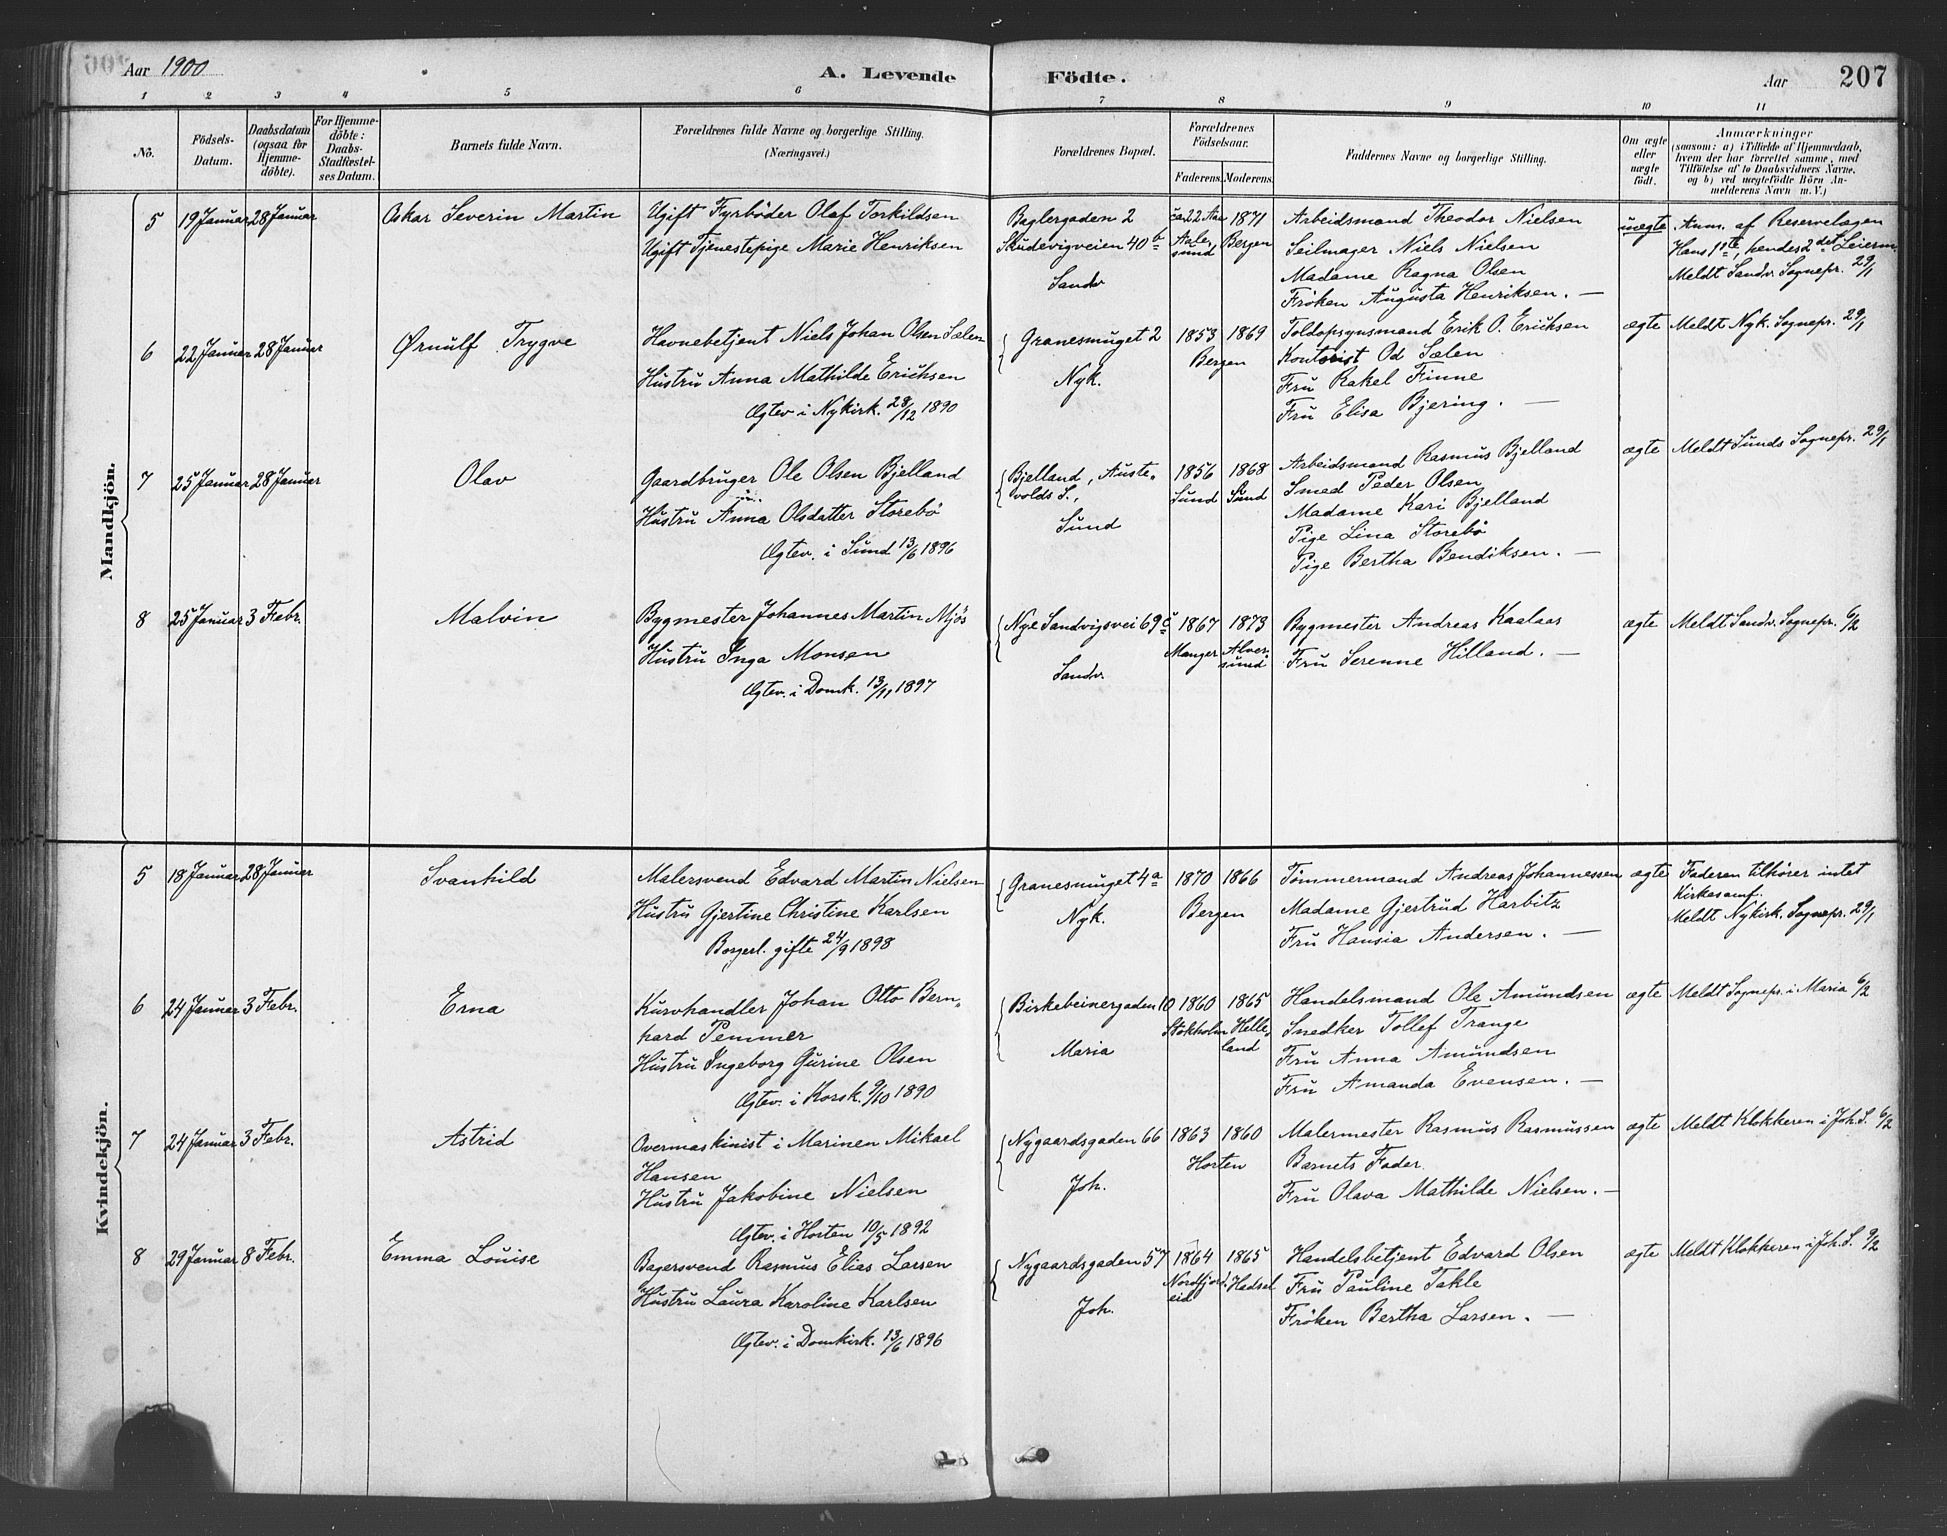 Aar 1900
A. Levende Födte.
Aar 207
1 2 3 4 5 6 7 8 9 10 11
No.
Födsels-Datum.
Daabsdatum (ogsaa for Hjemme-döbte).
For Hjemme-döbte: Daabs-Stadfæstel-ses Datum.
Barnets fulde Navn.
Forældrenes fulde Navne og borgerlige Stilling. (Næringsvei.)
Forældrenes Bopæl.
Forældrenes Födselsaar.
Faderens. Moderens.
Faddernes Navne og borgerlige Stilling.
Om ægte eller uægte födt.
Anmærkninger
(saasom: a) i Tilfælde af Hjemmedaab, hvem der har forrettet samme, med Tilföielse af to Daabsvidners Navne, og b) ved uægtefödte Börn An-melderens Navn m. V.)
Mandkjön.
5 19 Januar 28 Januar Oskar Severin Martin
Ugift Fyrböder Olaf Torkildsen
Ugift Tjenestepige Marie Henriksen
Baglergaden 2
Skudevigveien 40 b
Sandv
ca. 22 Aar Aalesund
1871 Bergen
Arbeidsmand Theodor Nielsen
Seilmager Niels Nielsen
Madame Ragna Olsen
Fröken Augusta Henriksen. —
uægte
Anm. af Reservelægen
Hans 1ste, hendes 2det Leierm.
Meldt Sandv. Sognepr. 29/1
6 22 Januar 28 Januar Ørnulf Trygve
Havnebetjent Niels Johan Olsen Sælen
Hustru Anna Mathilde Erichsen
Ægtev. i Nykirk. 28/12 1890
Granesmuget 2
Nyk.
1853 1869
Bergen
Toldopsynsmand Erik O. Erichsen
Kontorist Od Sælen
Fru Rakel Finne
Fru Elisa Bjering. —
ægte
Meldt Nyk. Sognepr. 29/1
7 25 Januar 28 Januar Olav
Gaardbruger Ole Olsen Bjelland
Hustru Anna Olsdatter Storebö
Ægtev. i Sund 13/6 1896
Bjelland, Auste-
volds S.,
Sund
1856 1868
Sund Sund
Arbeidsmand Rasmus Bjelland
Smed Peder Olsen
Madame Kari Bjelland
Pige Lina Storebö
Pige Bertha Bendiksen. —
ægte
Meldt Sunds Sognepr. 29/1
8 25 Januar 3 Febr. Malvin
Bygmester Johannes Martin Mjös
Hustru Inga Monsen
Ægtev. i Domk. 13/11 1897
Nye Sandvigsvei 69 c
Sandv.
1867 1873
Manger Alver-sund
Bygmester Andreas Kaalaas
Fru Serenne Hilland. —
ægte
Meldt Sandv. Sognepr. 6/2
Kvindekjön.
5 18 Januar 28 Januar Svanhild
Malersvend Edvard Martin Nielsen
Hustru Gjertine Christine Karlsen
Borgerl. gifte 24/9 1898
Granesmuget 4 a
Nyk.
1870 1866
Bergen
Tömmermand Andreas Johannessen
Madame Gjertrud Harbitz
Fru Hansia Andersen. —
ægte
Faderen tilhører intet
Kirkesamf.
Meldt Nykirk. Sognepr. 29/1
6 24 Januar 3 Febr. Erna
Kurvhandler Johan Otto Bern-
hard Pemmer
Hustru Ingeborg Gurine Olsen
Ægtev. i Korsk. 9/10 1890
Birkebeinergaden 10
Maria
1860 1865
Stokholm Helle-land
Handelsmand Ole Amundsen
Snedker Tollef Trange
Fru Anna Amundsen
Fru Amanda Evensen. —
ægte
Meldt Sognepr. i Maria 6/2
7 24 Januar 3 Febr. Astrid
Overmaskinist i Marinen Mikael
Hansen
Hustru Jakobine Nielsen
Ægtev. i Horten 10/5 1892
Nygaardsgaden 66
Joh.
1863 1860
Horten
Malermester Rasmus Rasmussen
Barnets Fader.
Fru Olava Mathilde Nielsen. —
ægte
Meldt Klokkeren i Joh. S. 6/2
8 29 Januar 8 Febr. Emma Louise
Bagersvend Rasmus Elias Larsen
Hustru Laura Karoline Karlsen
Ægtev. i Domkirk. 13/6 1896
Nygaardsgaden 57
Joh.
1864 1865
Nordfjord-eid Hadsel
Handelsbetjent Edvard Olsen
Fru Pauline Takle
Fröken Bertha Larsen. —
ægte
Meldt Klokkeren i Joh. S. 9/2